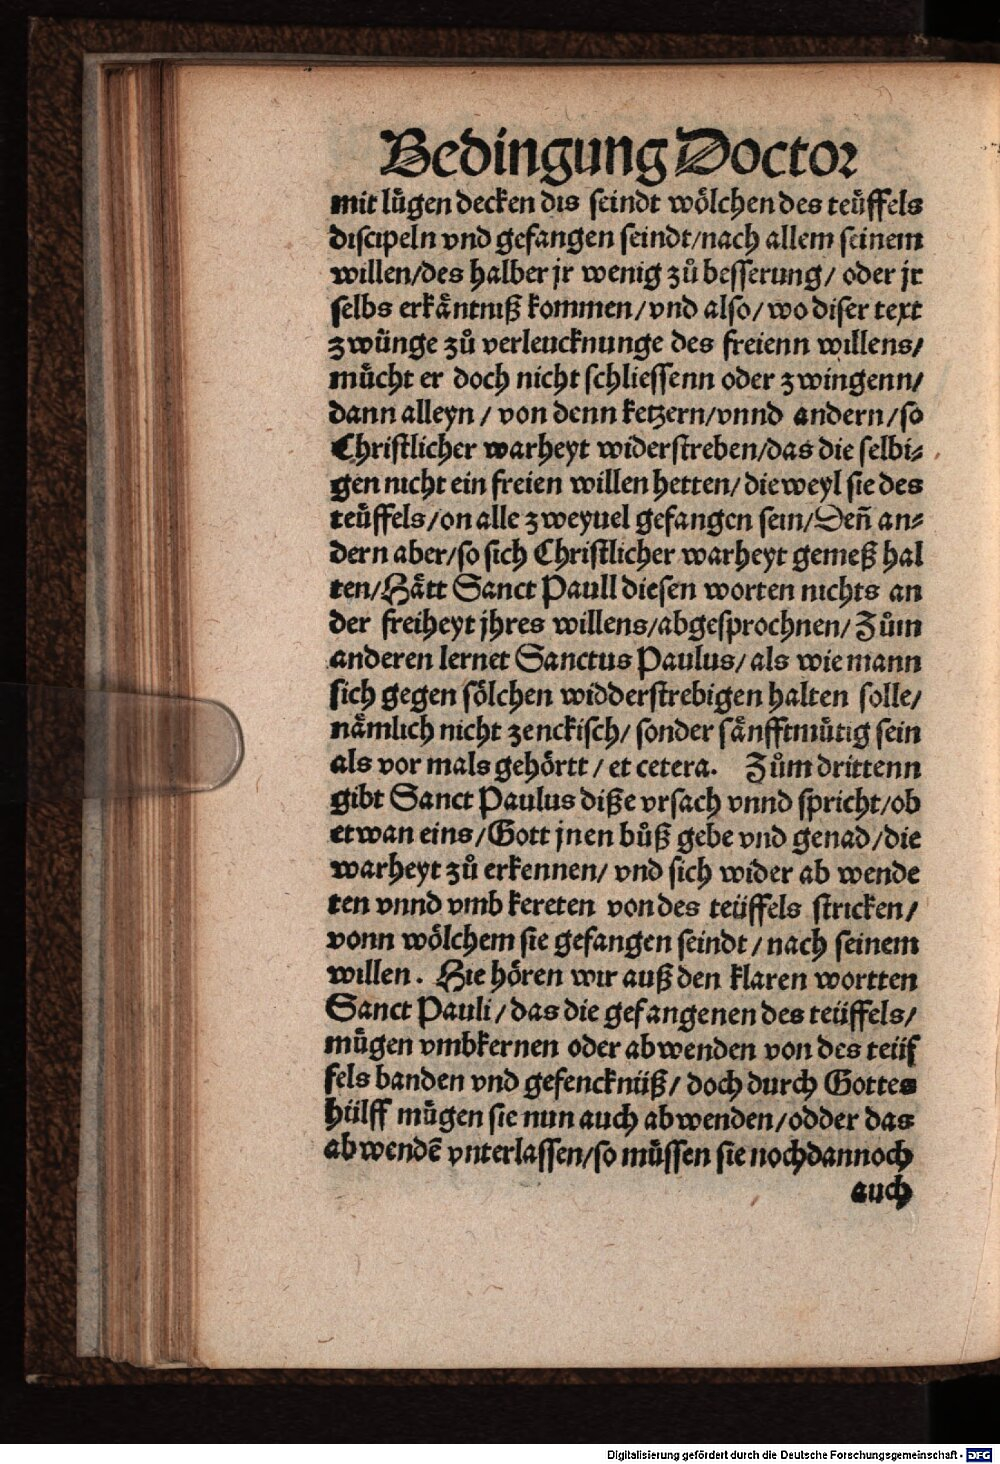 Bedingung Doctor
mit lůgen decken dis seindt wölchen des teůffels
discipeln vnd gefangen seindt/nach allem seinem
willen/des halber jr wenig zů besserung/ oder jr
selbs erkäntniß kommen/vnd also/wo diser text
zwünge zů verleucknunge des freienn willens/
mücht er doch nicht schliessenn oder zwingenn/
dann alleyn/von denn ketzern/vnnd andern/so
Christlicher warheyt widerstreben/das die selbi⸗
gen nicht ein freien willen hetten/dieweyl sie des
teůffels/on alle zweyuel gefangen sein/Deñ an⸗
dern aber/so sich Christlicher warheyt gemeß hal
ten/Hätt Sanct Paull diesen worten nichts an
der freiheyt jhres willens/abgesprochnen/Zům
anderen lernet Sanctus Paulus/als wie mann
sich gegen sölchen widderstrebigen halten solle/
nämlich nicht zenckisch/sonder sänfftmůtig sein
als vor mals gehörtt/et cetera. Zům drittenn
gibt Sanct Paulus diße vrsach vnnd spricht/ob
etwan eins/Gott jnen bůß gebe vnd genad/die
warheyt zů erkennen/vnd sich wider ab wende
ten vnnd vmb kereten von des teüffels stricken/
vonn wölchem sie gefangen seindt/nach seinem
willen. Hie hören wir auß den klaren wortten
Sanct Pauli/das die gefangenen des teüffels/
mügen vmbkernen oder abwenden von des teüf
fels banden vnd gefencknüß/doch durch Gottes
hülff mügen sie nun auch abwenden/odder das
abwendē vnterlassen/so müssen sie nochdannoch
auch
Digitalisierung gefördert durch die Deutsche Forschungsgemeinschaft - DFG